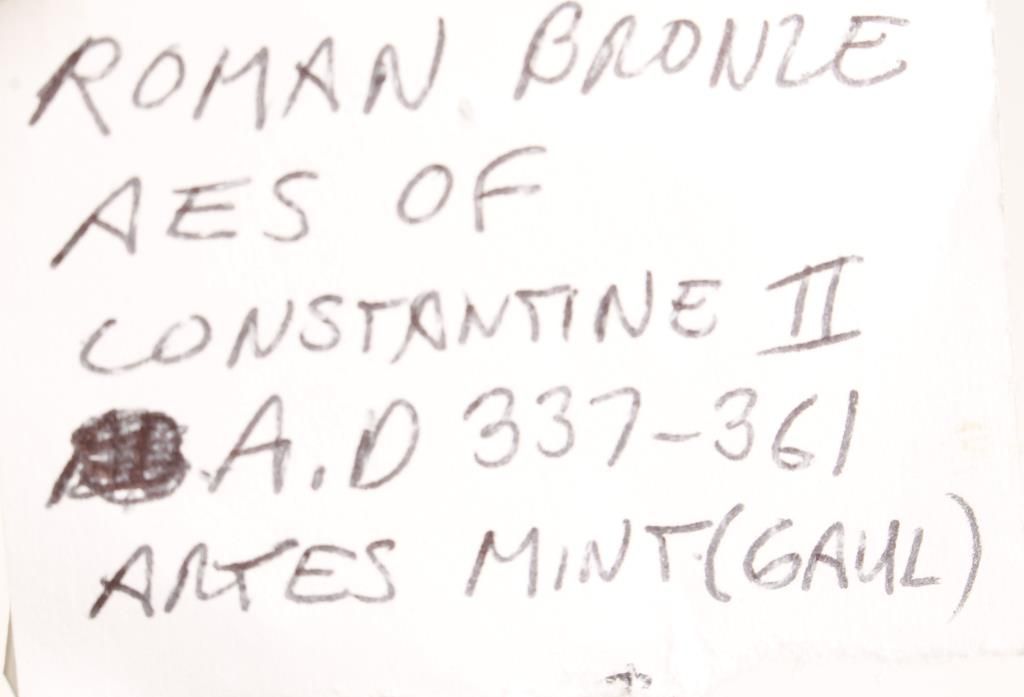 ROMAN BRONZE
AES OF
CONSTANTINE II
A.D 337-361
ARTES MINT (GAUL)